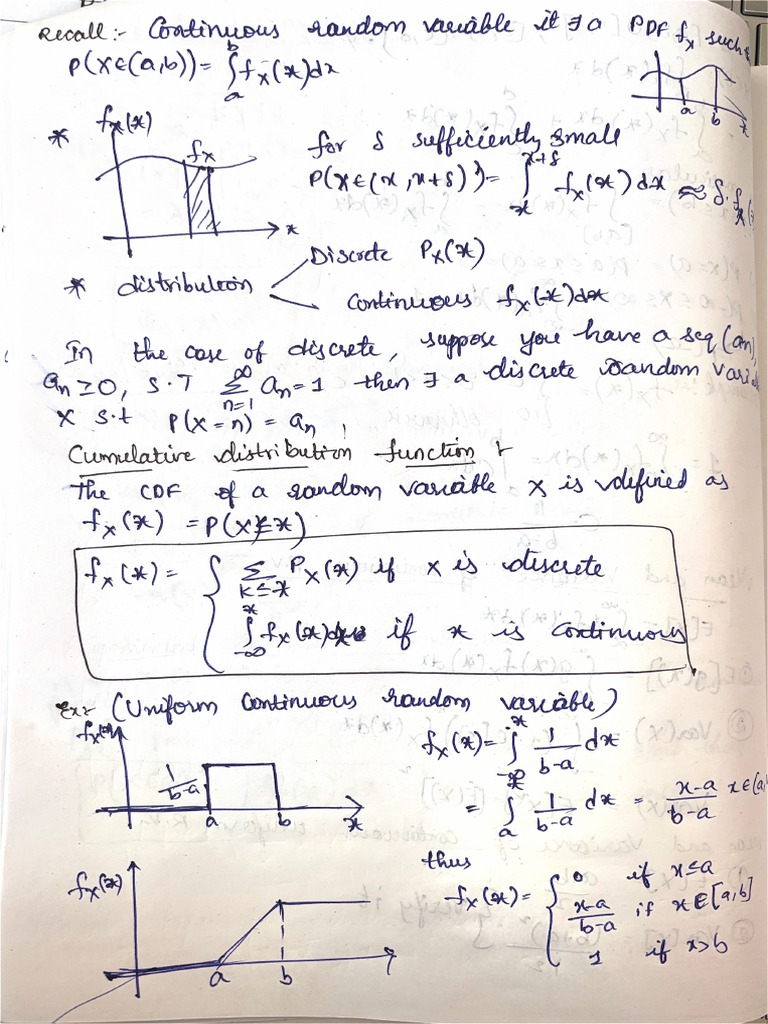 Recall :- Continuous random variable if ∃ a PDF f_X such
P(X∈(a,b)) = ∫_a^b f_X(x)dx
a b x
* f_X(x) f_X x
for δ sufficiently small
P(X∈(x, x+δ)) = ∫_x^{x+δ} f_X(x) dx ≈ δ.f_X(
* distribution
Discrete P_X(x)
Continuous f_X(x)dx
In the case of discrete, suppose you have a seq (an),
a_n ≥ 0, S.T ∑_{n=1}^∞ a_n = 1 then ∃ a discrete random
X s.t P(X = n) = a_n
Cumulative distribution function :-
The CDF of a random variable X is defined as
f_X(x) = P(X ≤ x)
f_X(x) = { ∑_{k≤x} P_X(x) if X is discrete
∫_{-∞}^x f_X(x)dx if x is continuous
Ex:- (Uniform continuous random variable)
f_X(x)
1/(b-a)
a b x
f_X(x) = ∫_{-∞}^x 1/(b-a) dx
= ∫_a^x 1/(b-a) dx = (x-a)/(b-a) x∈(a,
thus
f_X(x) = { 0 if x≤a
(x-a)/(b-a) if x∈[a,b]
1 if x>b
f_X(x)
a b